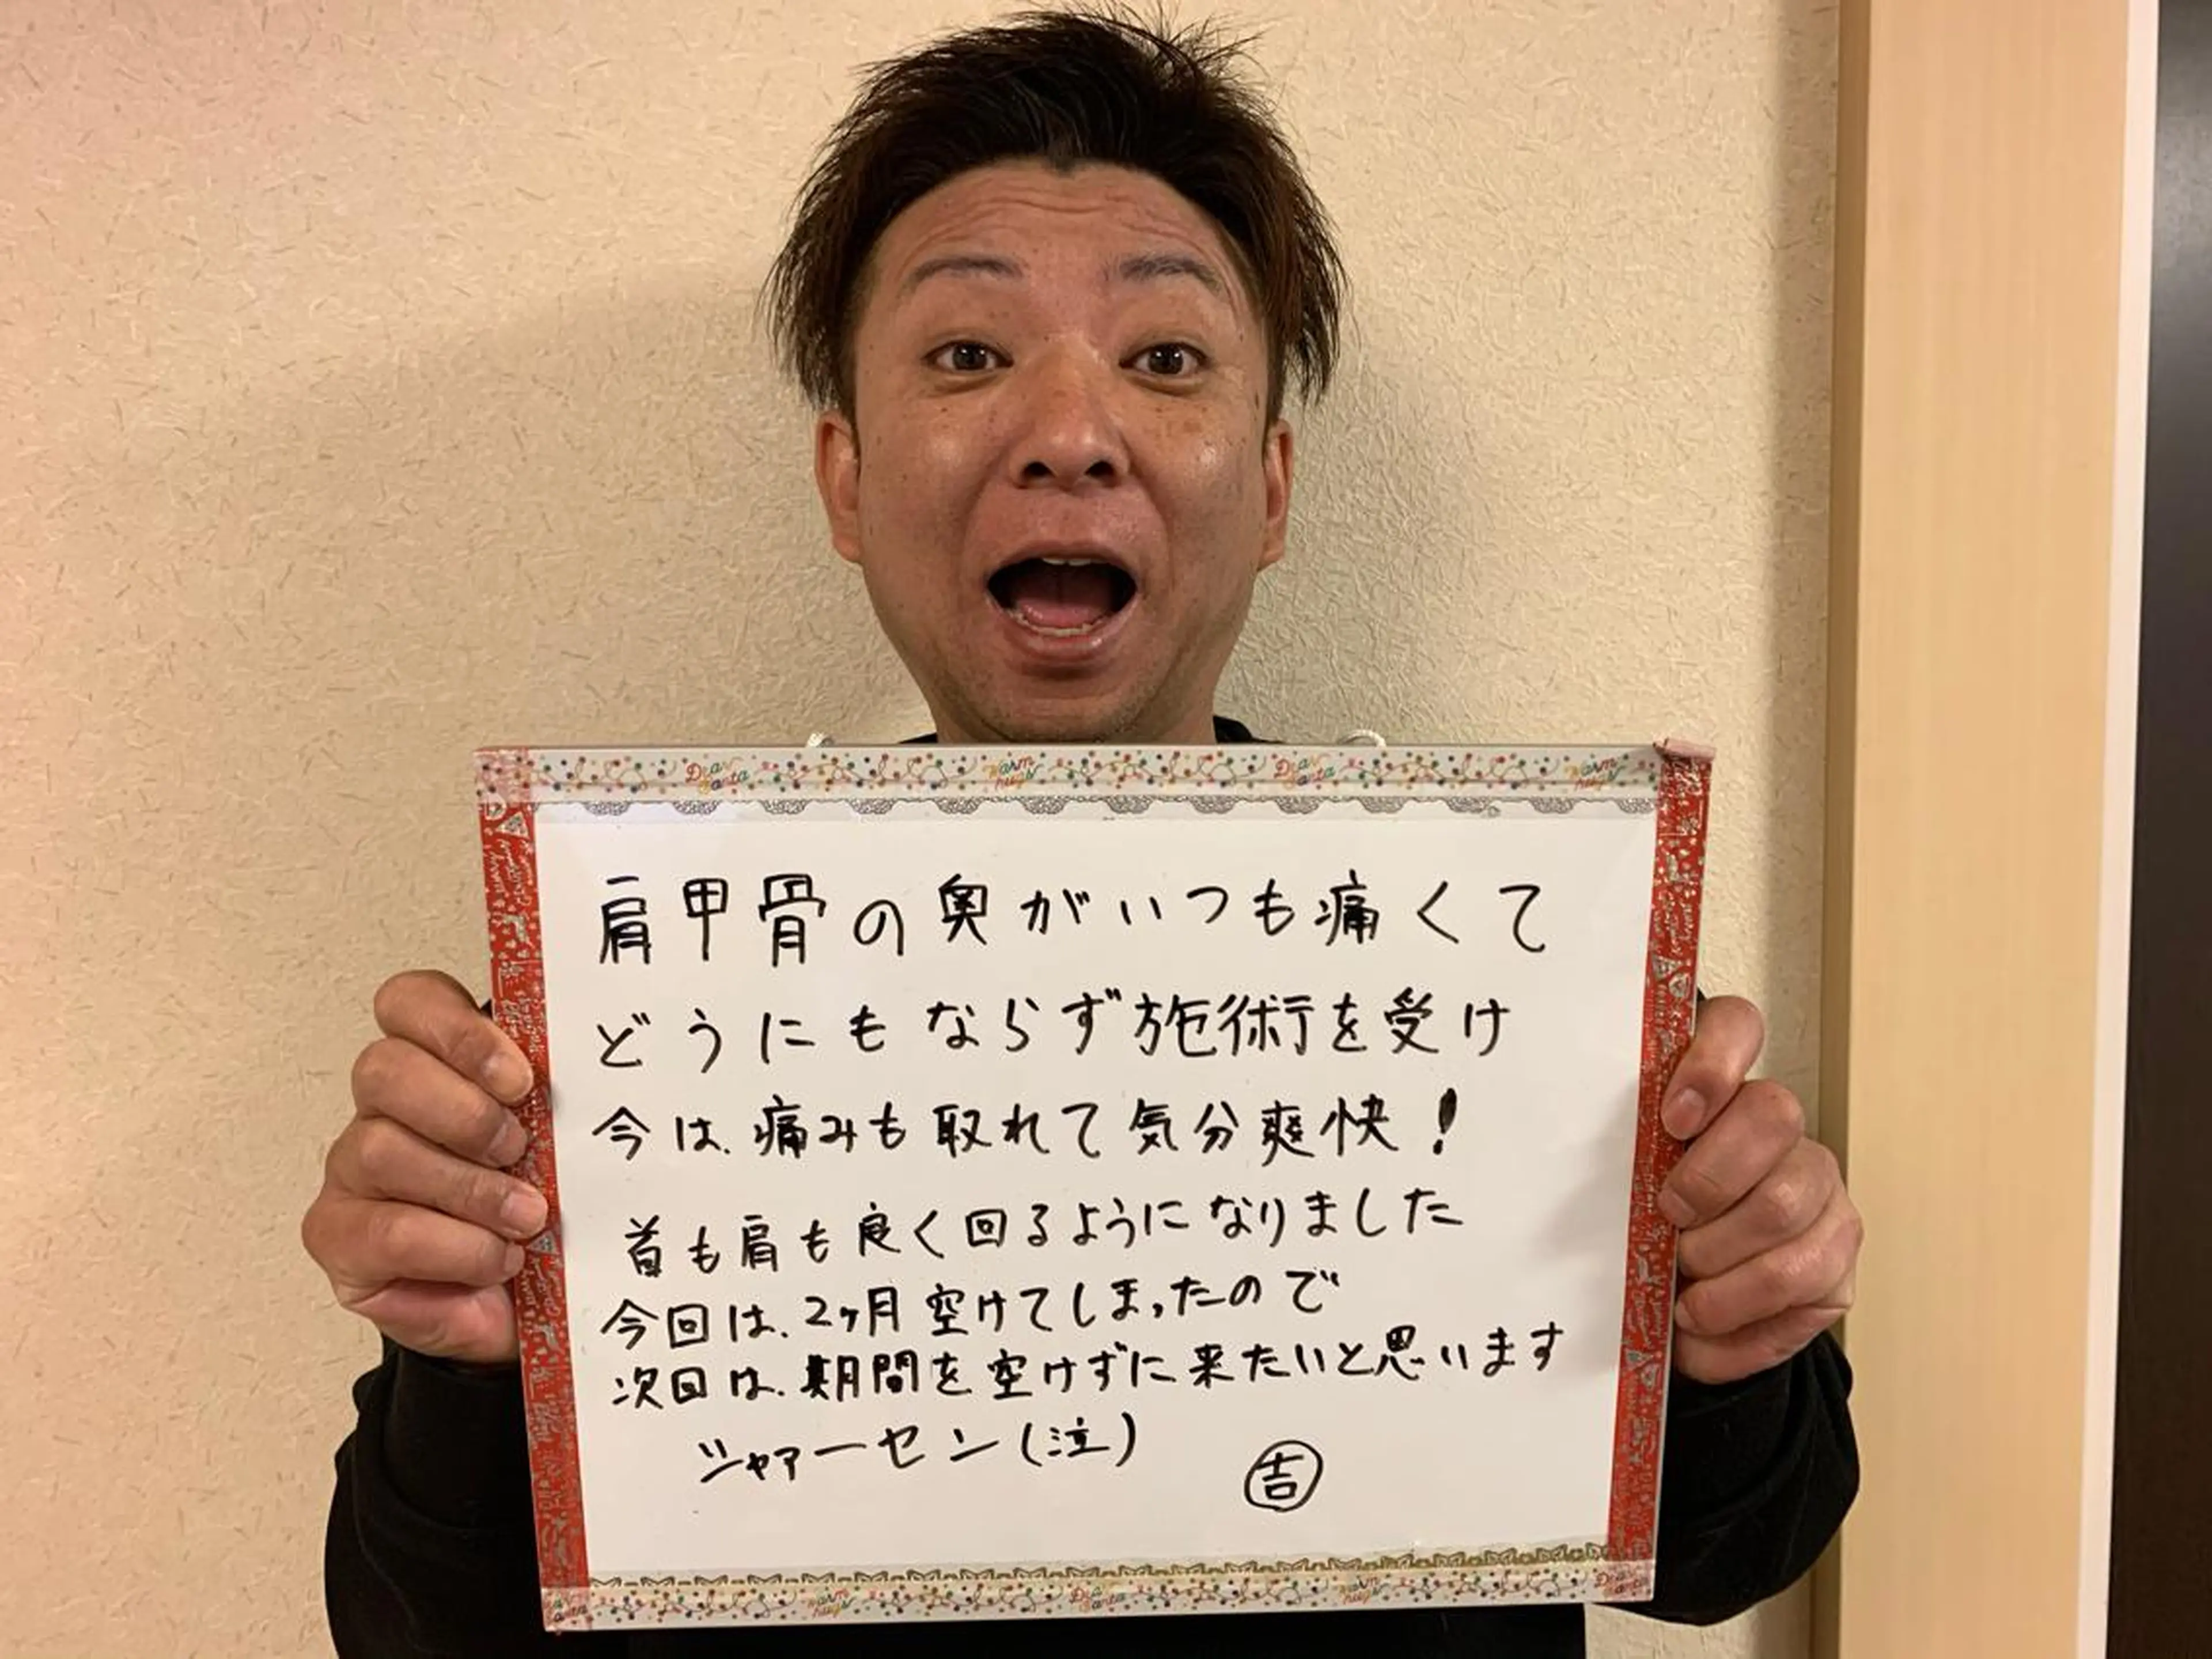 Dear Santa Warm hugs Dear Santa Warm hugs
肩甲骨の奥がいつも痛くて
どうにもならず施術を受け
今は、痛みも取れて気分爽快！
首も肩も良く回るようになりました
今回は、2ヶ月空けてしまったので
次回は、期間を空けずに来たいと思います
シャァーセン(泣)
吉
Dear Santa Warm hugs Dear Santa Warm hugs Dear Santa